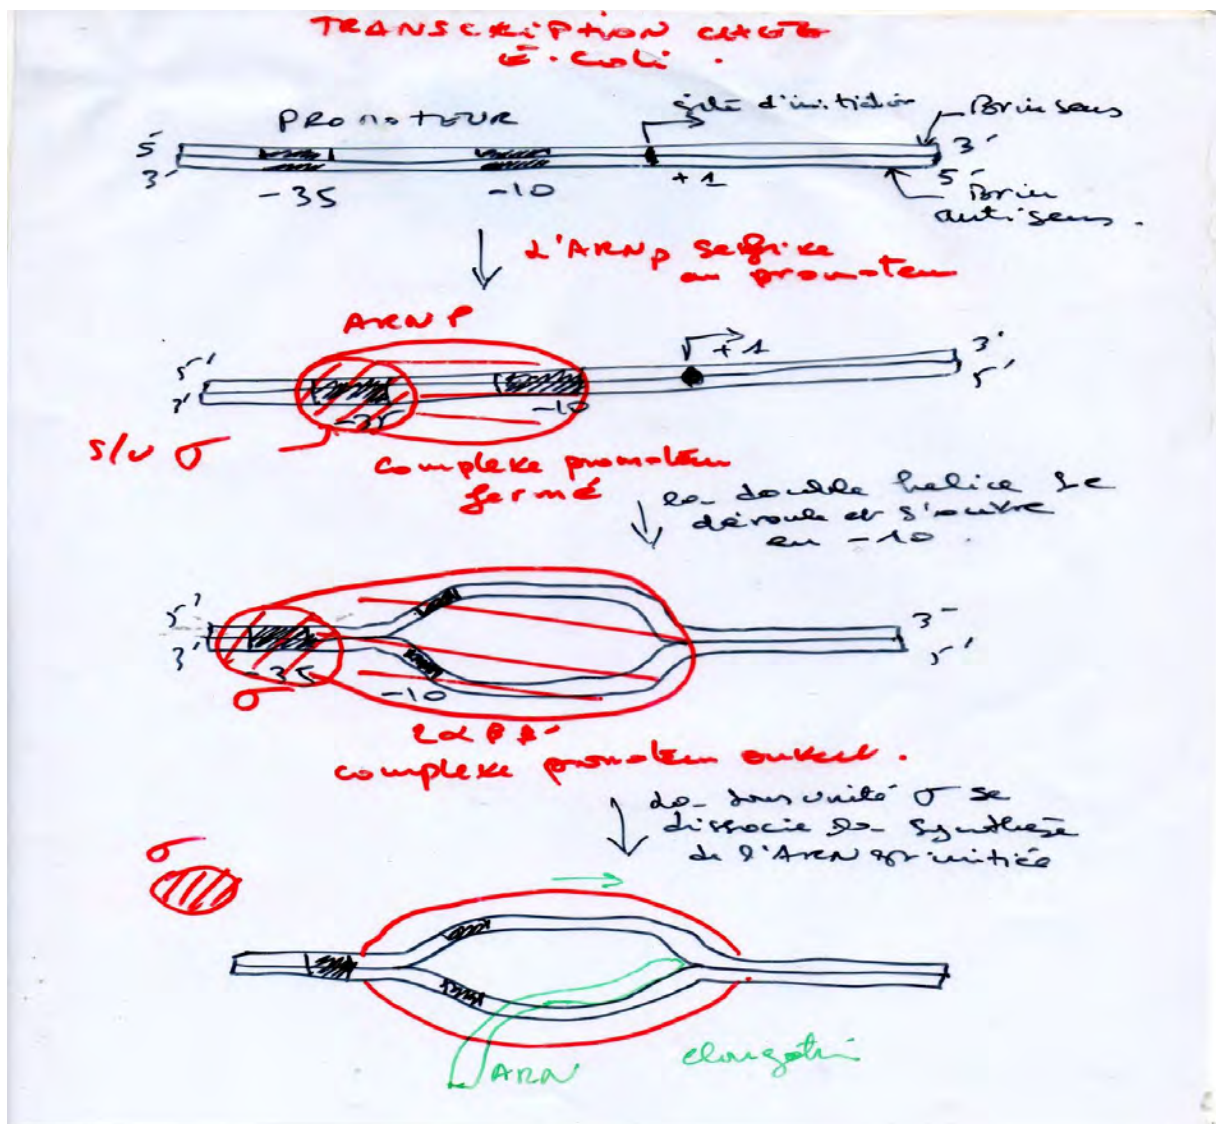 TRANSCRIPTION CHEZ
E. Coli.
PROMOTEUR
site d'initiation
Brin sens
5'
3'
3'
5'
-35
-10
+1
Brin
antisens.
L'ARNp se fixe
au promoteur
ARNP
+1
5'
3'
3'
5'
-35
-10
s/u σ
complexe promoteur
fermé
la double helice se
déroule et s'ouvre
en -10.
5'
3'
3'
5'
-35
-10
σ
2α β β'
complexe promoteur ouvert.
La sous unité σ se
dissocie la synthese
de l'ARN est initiée
σ
ARN
elongation